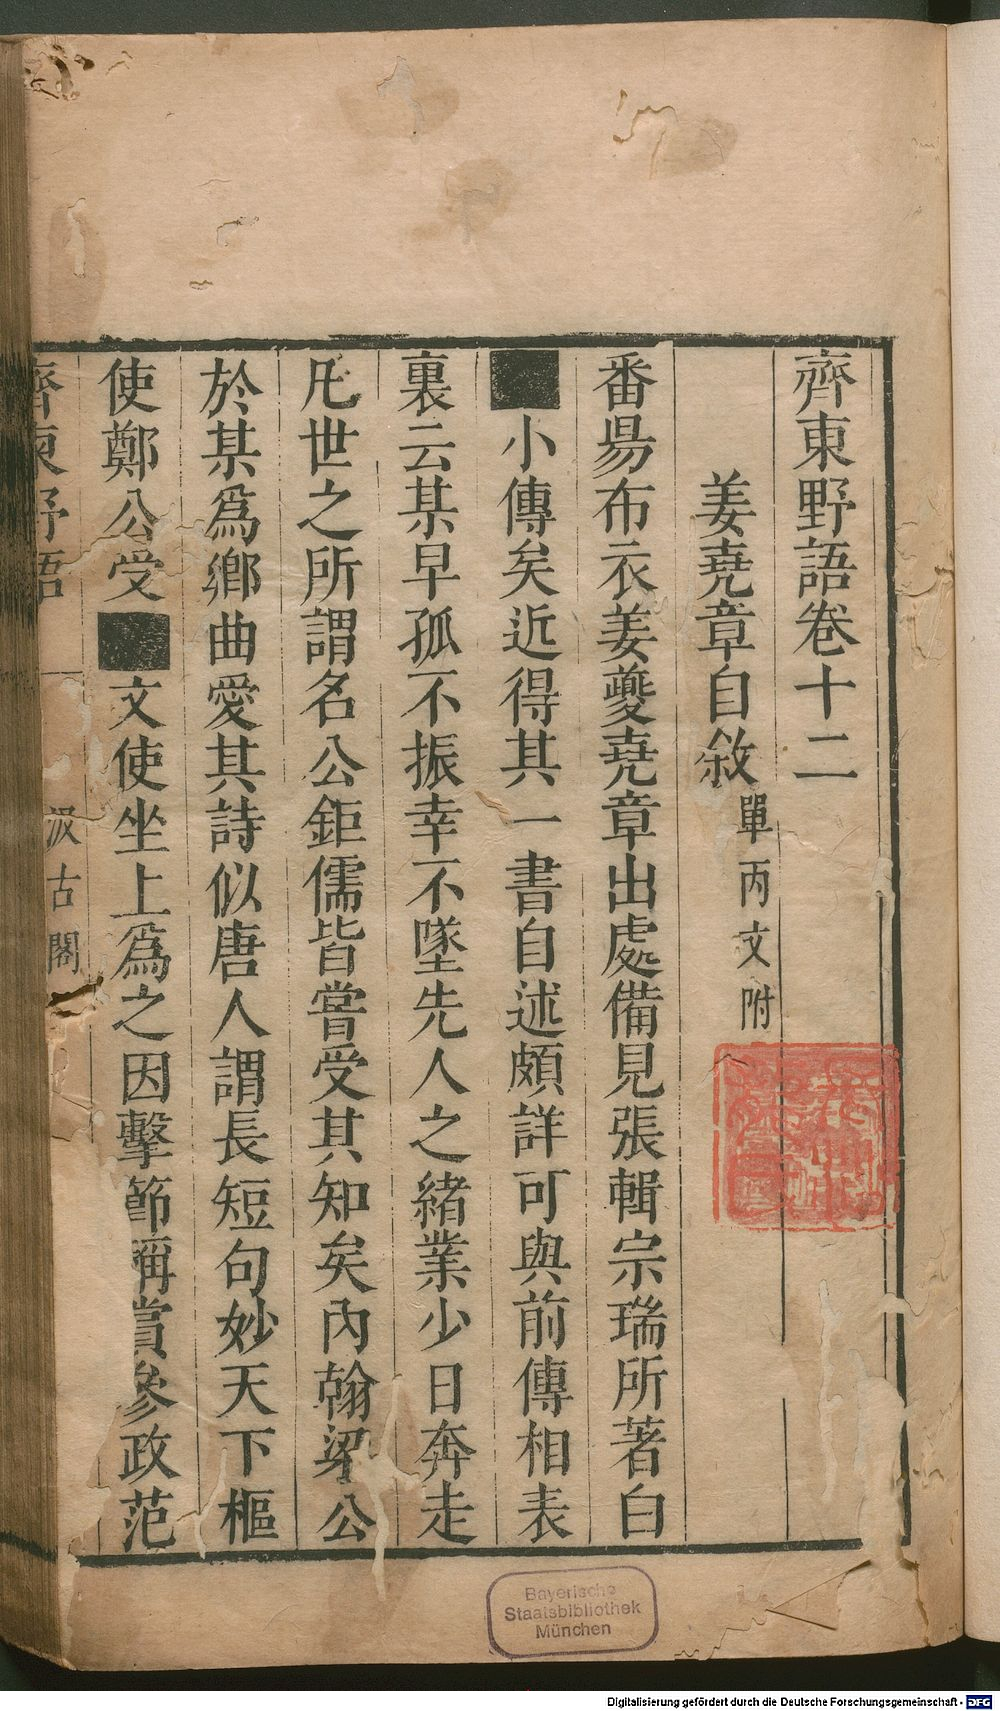 齊東野語卷十二
姜堯章自敘單丙文附
番昜布衣姜夔堯章出處備見張輯宗瑞所著白
■小傳矣近得其一書自述頗詳可與前傳相表
裏云某早孤不振幸不墜先人之緒業少日奔走
凡世之所謂名公鉅儒皆嘗受其知矣內翰梁公
於某爲鄉曲愛其詩似唐人謂長短句妙天下樞
使鄭公受■文使坐上爲之因擊節稱賞參政范
齊東野語
汲古閣
Bayerische
Staatsbibliothek
München
Digitalisierung gefördert durch die Deutsche Forschungsgemeinschaft - DFG